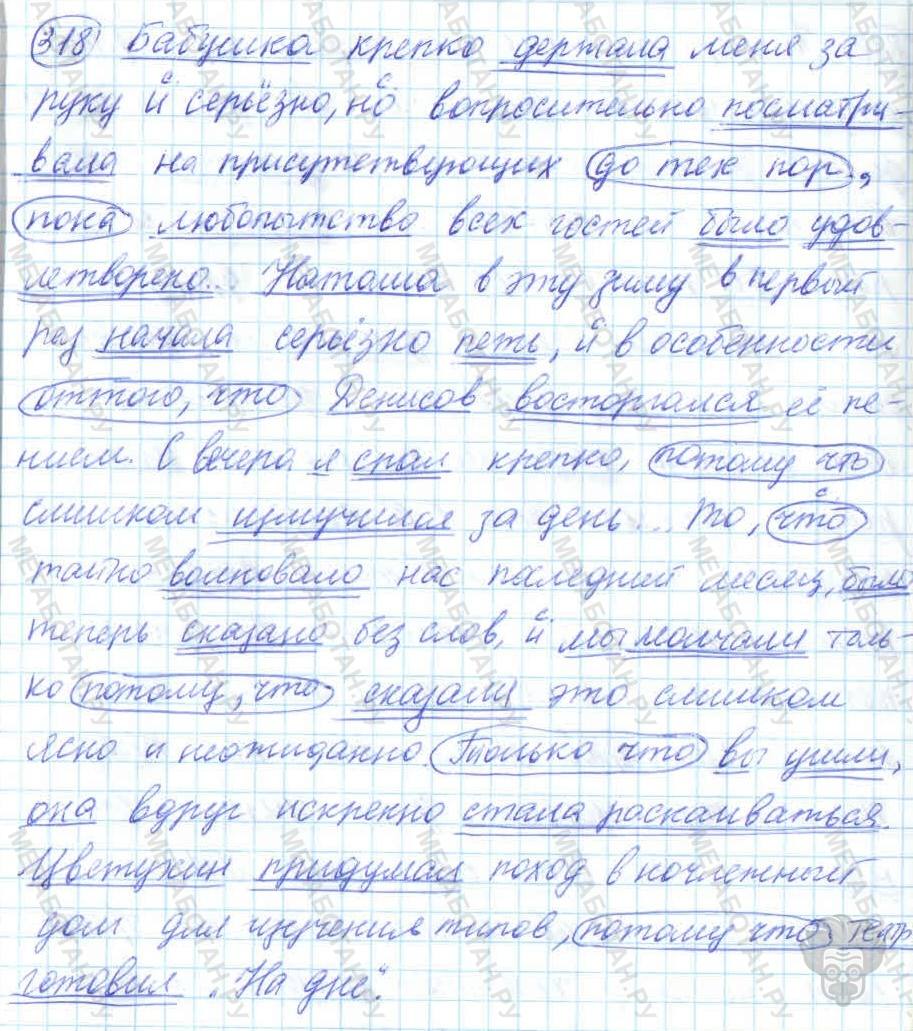 318 Бабушка крепко держала меня за
руку и серьёзно, но вопросительно посматри-
вала на присутствующих до тех пор,
пока любопытство всех гостей было удов-
летворено... Наташа в эту зиму в первый
раз начала серьёзно петь, и в особенности
оттого, что Денисов восторгался её пе-
нием. С вечера я спал крепко, потому что
слишком измучился за день... То, что
тайно волновало нас последний месяц, было
теперь сказано без слов, и мы молчали толь-
ко потому, что сказали это слишком
ясно и неожиданно. Только что вы ушли,
она вдруг искренно стала раскаиваться.
Цветухин придумал поход в ночлежный
дом для изучения типов, потому что театр
готовил "На дне".
МЕТАБОТАН.РУ